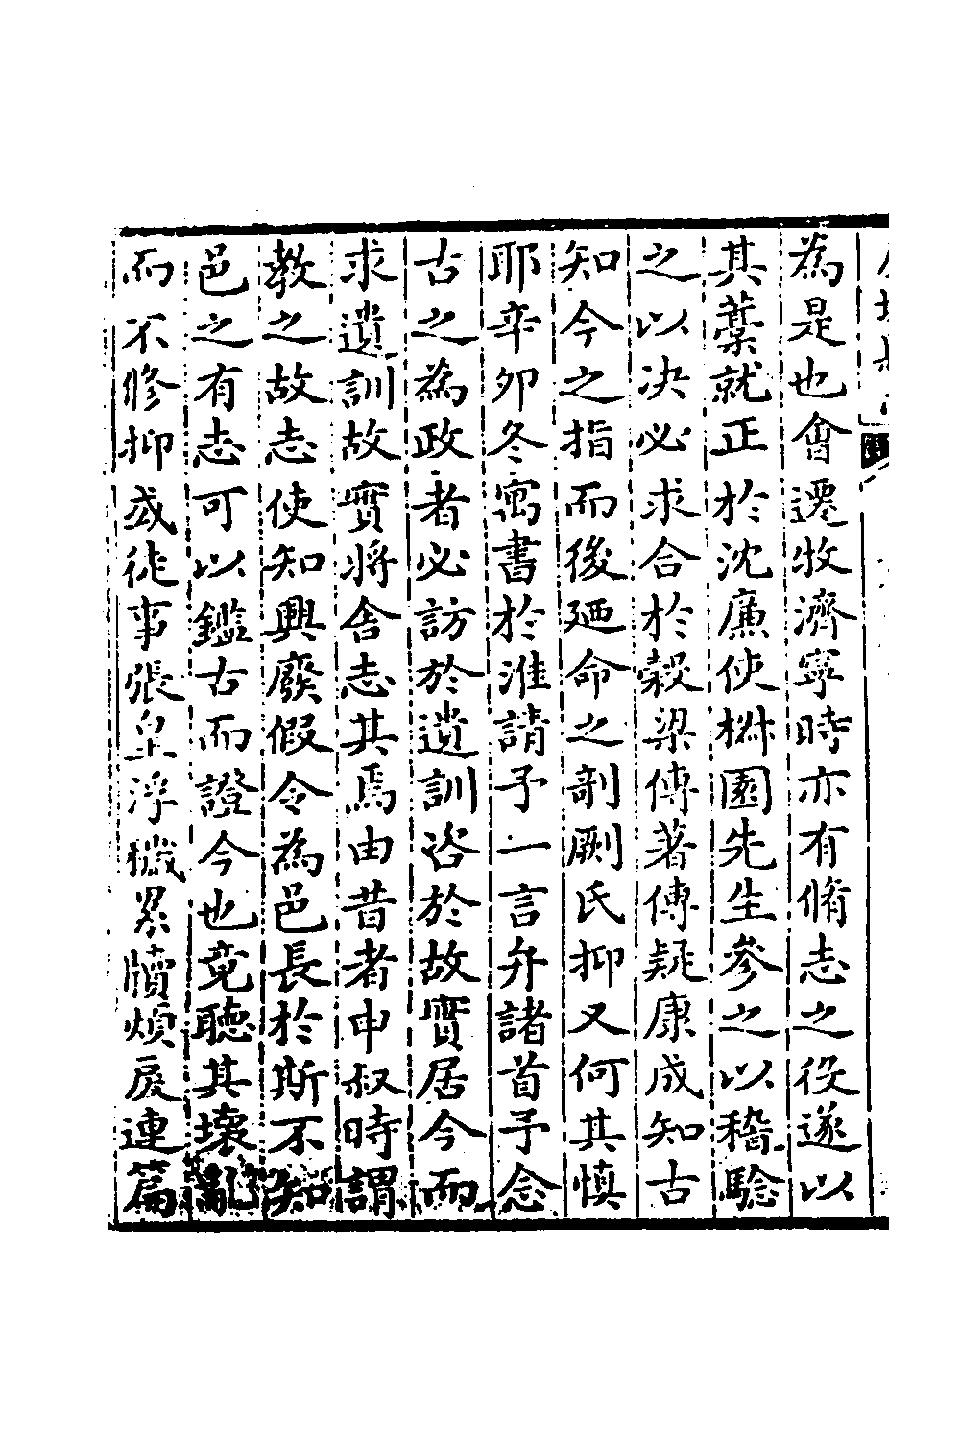 為是也會遷牧濟寧時亦有脩志之役遂以
其藁就正於沈廉使椒園先生參之以稽驗
之以決必求合於穀梁傳著傳疑康成知古
知今之指而後廼命之剞劂氏抑又何其慎
耶辛卯冬寓書於淮請予一言弁諸首予念
古之為政者必訪於遺訓咨於故實居今而
求遺訓故實將舍志其焉由昔者申叔時謂
教之故志使知興廢假令為邑長於斯不知
邑之有志可以鑑古而證今也竟聽其壞亂
而不修抑或徒事張皇浮穢累牘煩戾連篇